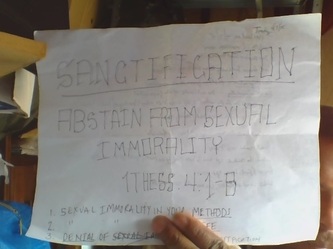 SANCTIFICATION
ABSTAIN FROM SEXUAL
IMMORALITY
1 THESS. 4:1-6
1. SEXUAL IMMORALITY IN YOUR METHOD!
2. " "
3. DENIAL OF